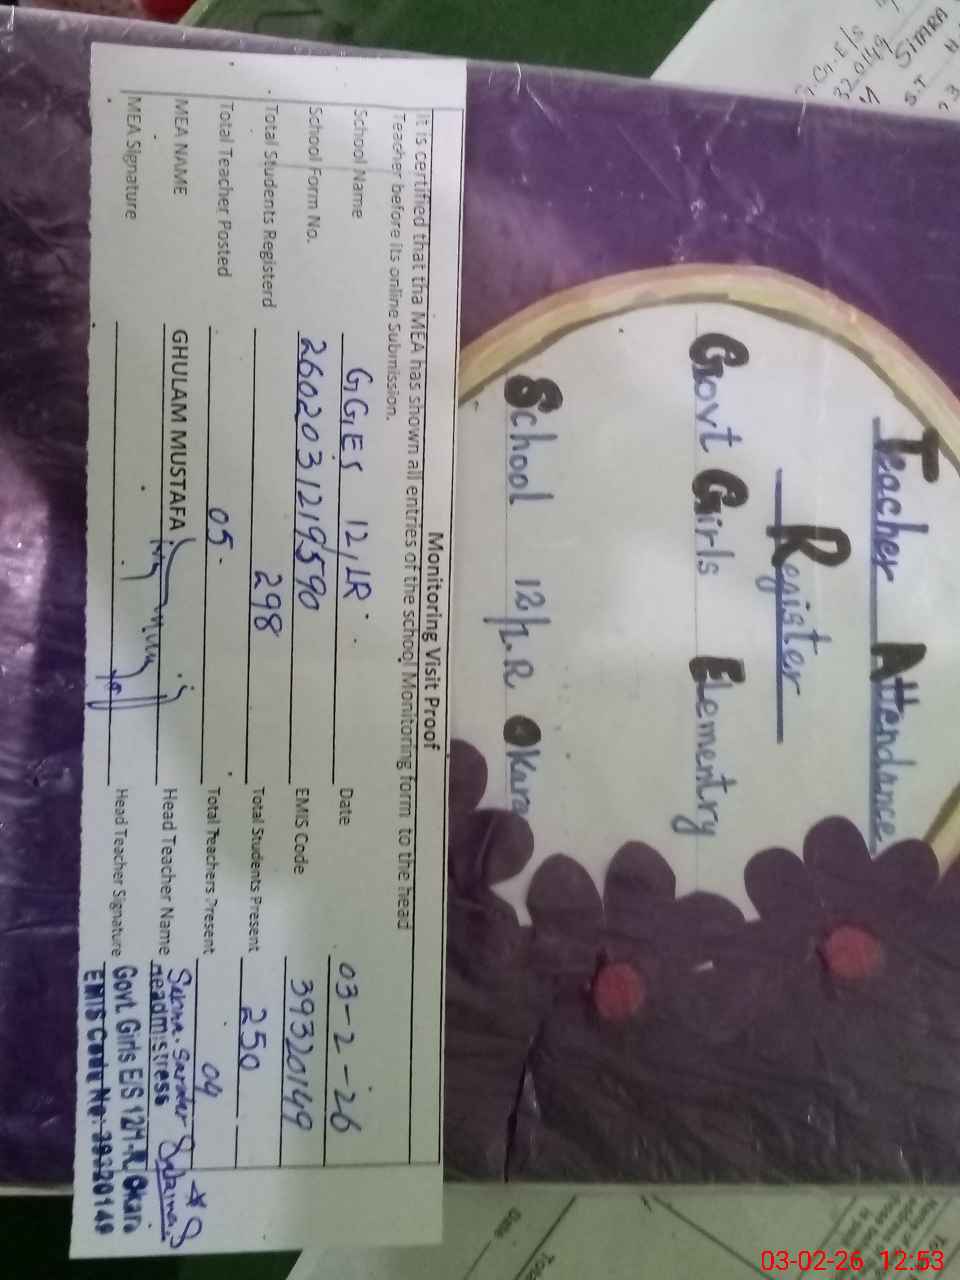 Teacher Attendance
Register
Govt Girls Elementry
School 12/1.R Okara
Monitoring Visit Proof
It is certified that tha MEA has shown all entries of the school Monitoring form to the head
Teacher before its online Submission.
School Name GGES 12/LR Date 03-2-26
School Form No. 2602031219590 EMIS Code 39320149
Total Students Registerd 298 Total Students Present 250
Total Teacher Posted 05 Total Teachers Present 04
MEA NAME GHULAM MUSTAFA Head Teacher Name
MEA Signature Head Teacher Signature
Headmistress
Govt. Girls E/S 12/1-R Okara
EMIS Code No: 39320149
G.G.E/S
320149
SITARA
S.T
Date
03-02-26 12:53